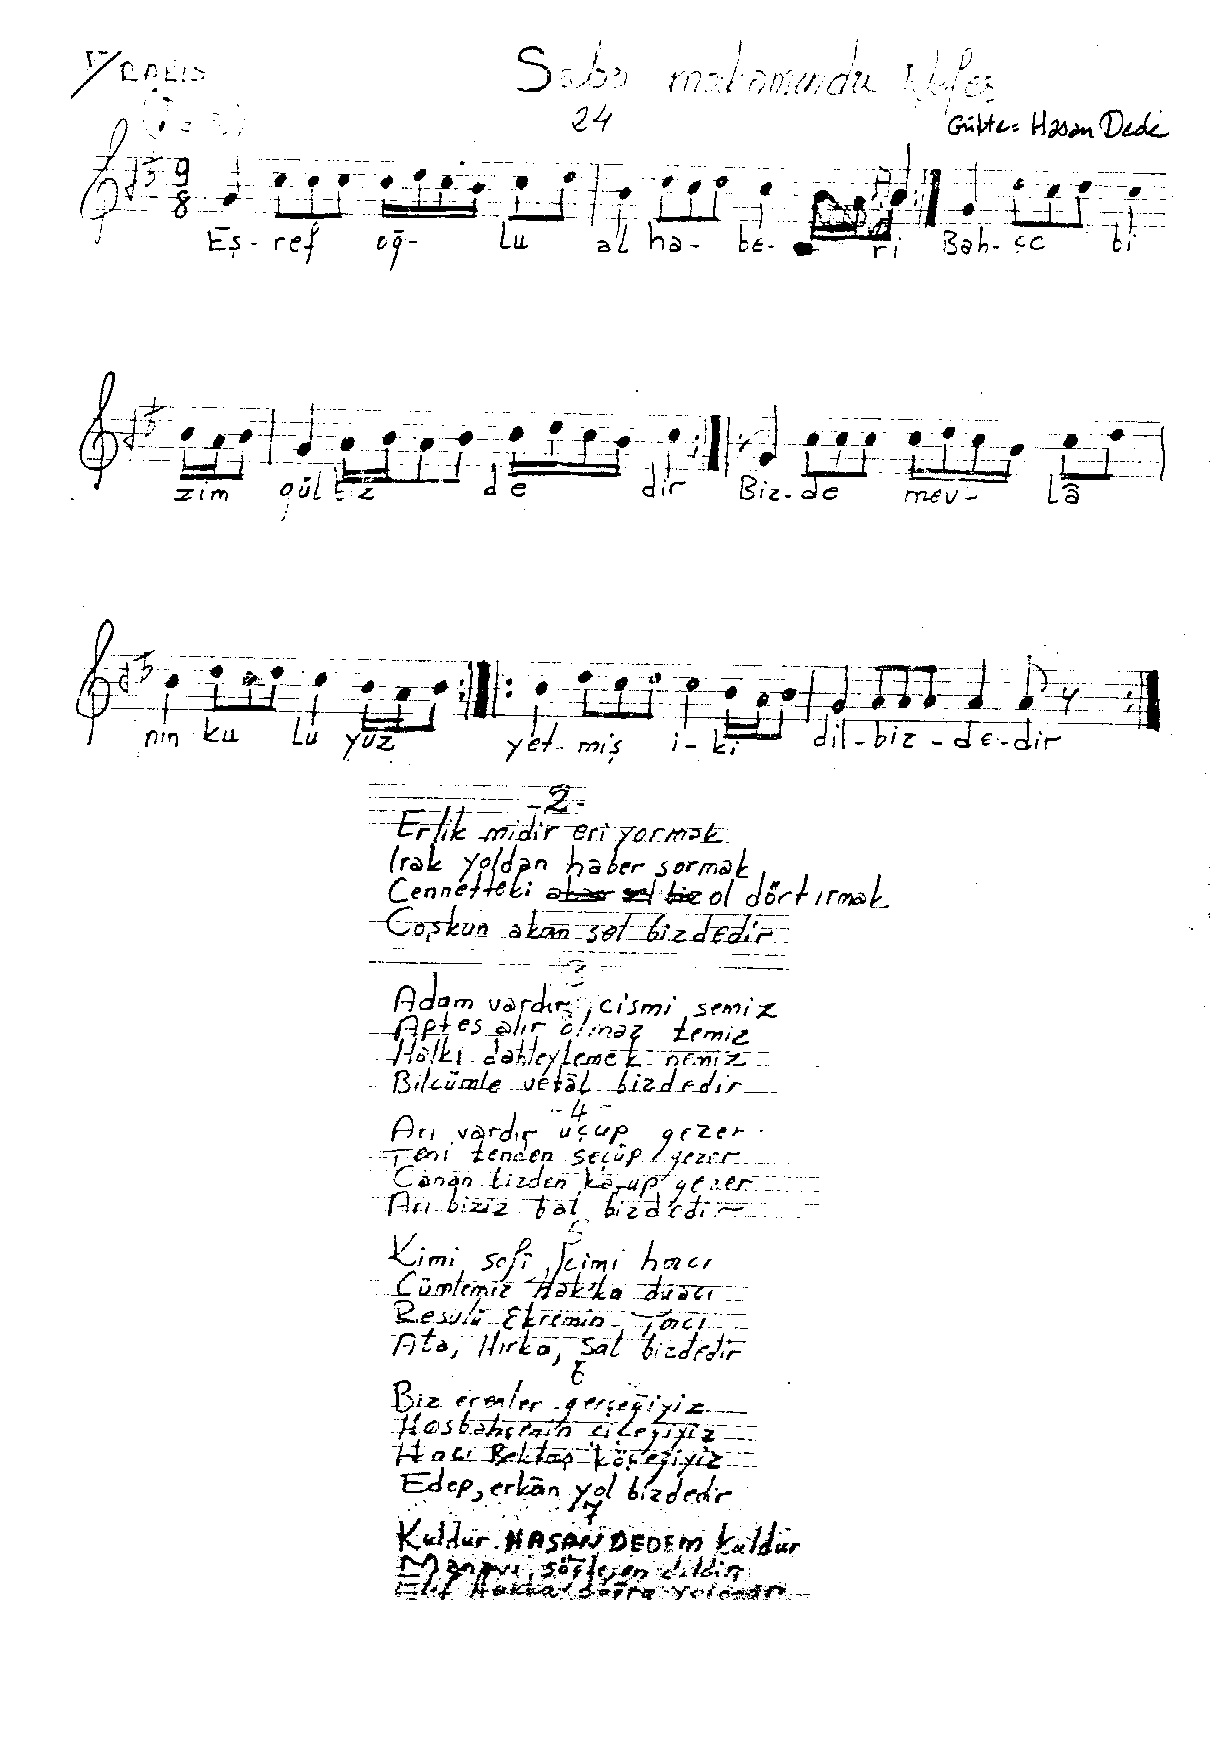 Saba makamında Nefes
24
Güfte: Hasan Dede
9
8
Eş- ref oğ- lu al ha- be- ri Bah- çe bi
zim gül biz de dir Biz- de mev- lâ
nin ku lu yuz yet- miş i- ki dil-biz-de-dir
-2-
Erlik midir eri yormak
Irak yoldan haber sormak
Cennetteki ol dört ırmak
Coşkun akan sel bizdedir
3
Adam vardır, cismi semiz
Aptes alır olmaz temiz
Halkı dahleylemek nemiz
Bilcümle vebâl bizdedir
-4-
Arı vardır uçup gezer
Teni tenden seçüp gezer
Canan bizden kaçup gezer
Arı biziz bal bizdedir
5
Kimi sofi, kimi hacı
Cümlemiz Hakka duacı
Resulü Ekremin Tacı
Aba, Hırka, Şal bizdedir
6
Biz erenler gerçeğiyiz
Hasbahçenin çiçeğiyiz
Hacı Bektaş köçeğiyiz
Edep, erkân yol bizdedir
7
Kuldur HASAN DEDEM kuldur
Manayı söyleyen dildir
Elif Hakka doğru yoldur